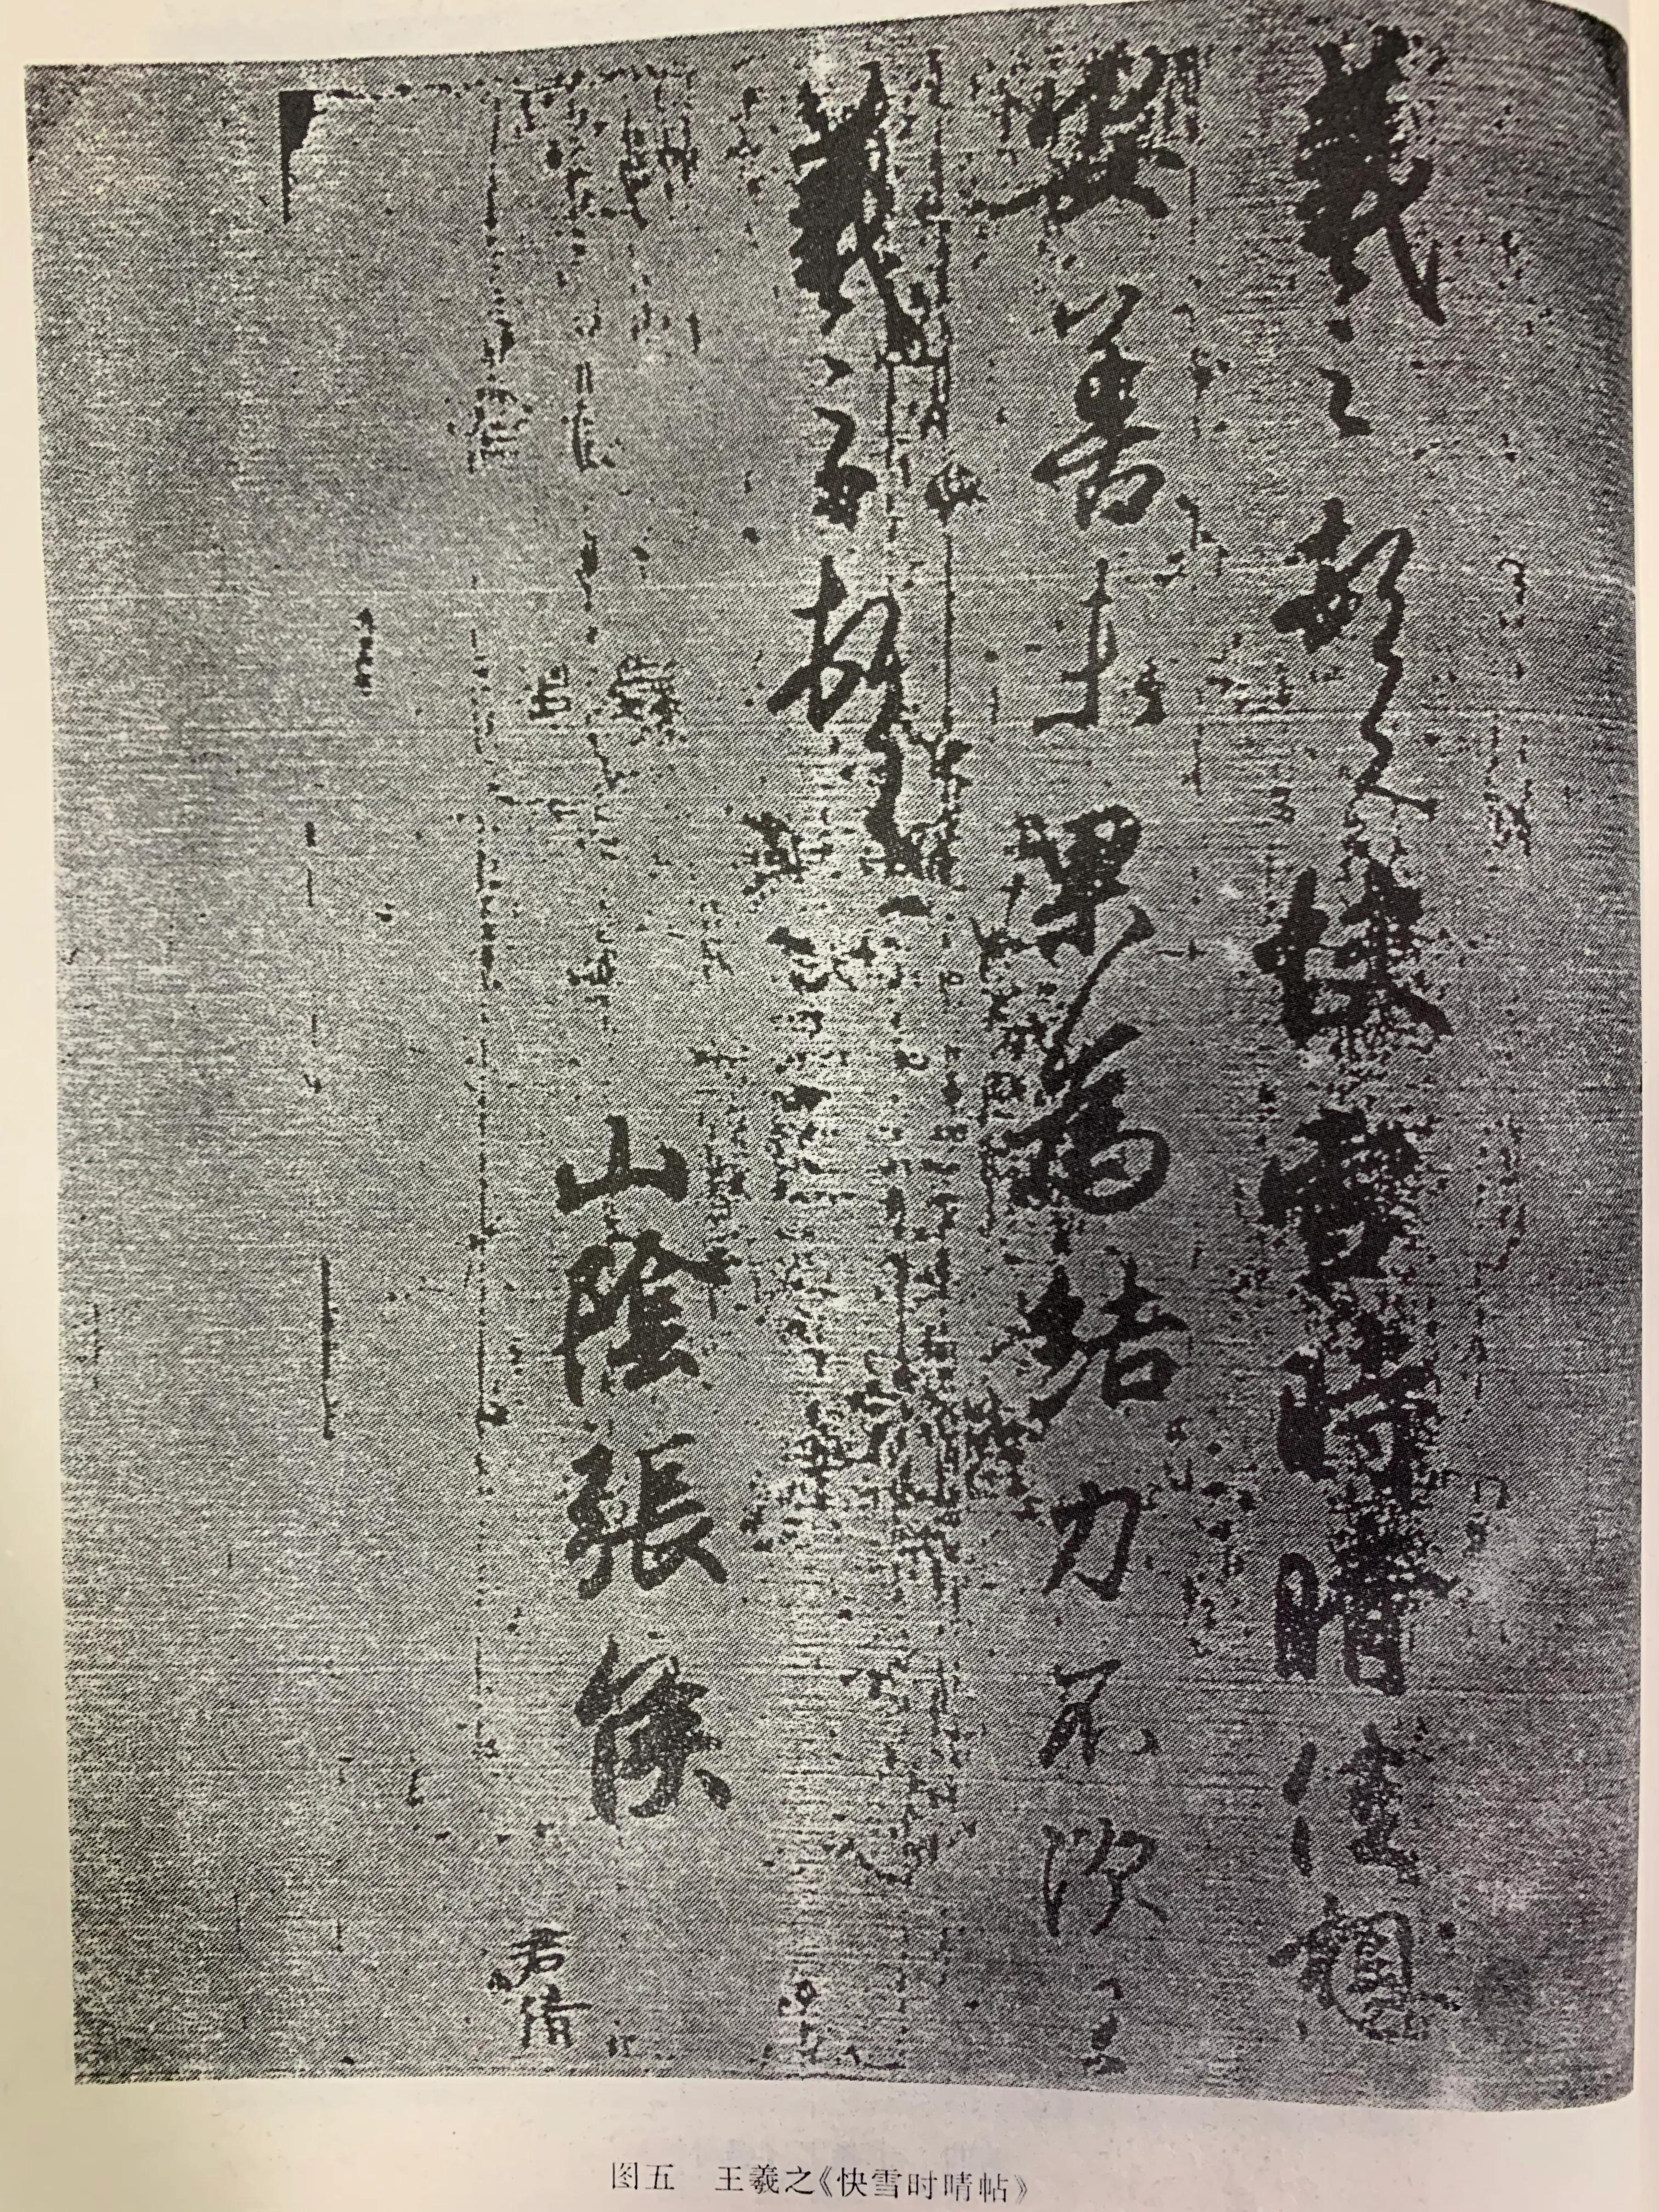 羲之頓首快雪時晴佳想
安善未果為結力不次王
羲之頓首
山陰張侯
君倩
图五　王羲之《快雪时晴帖》